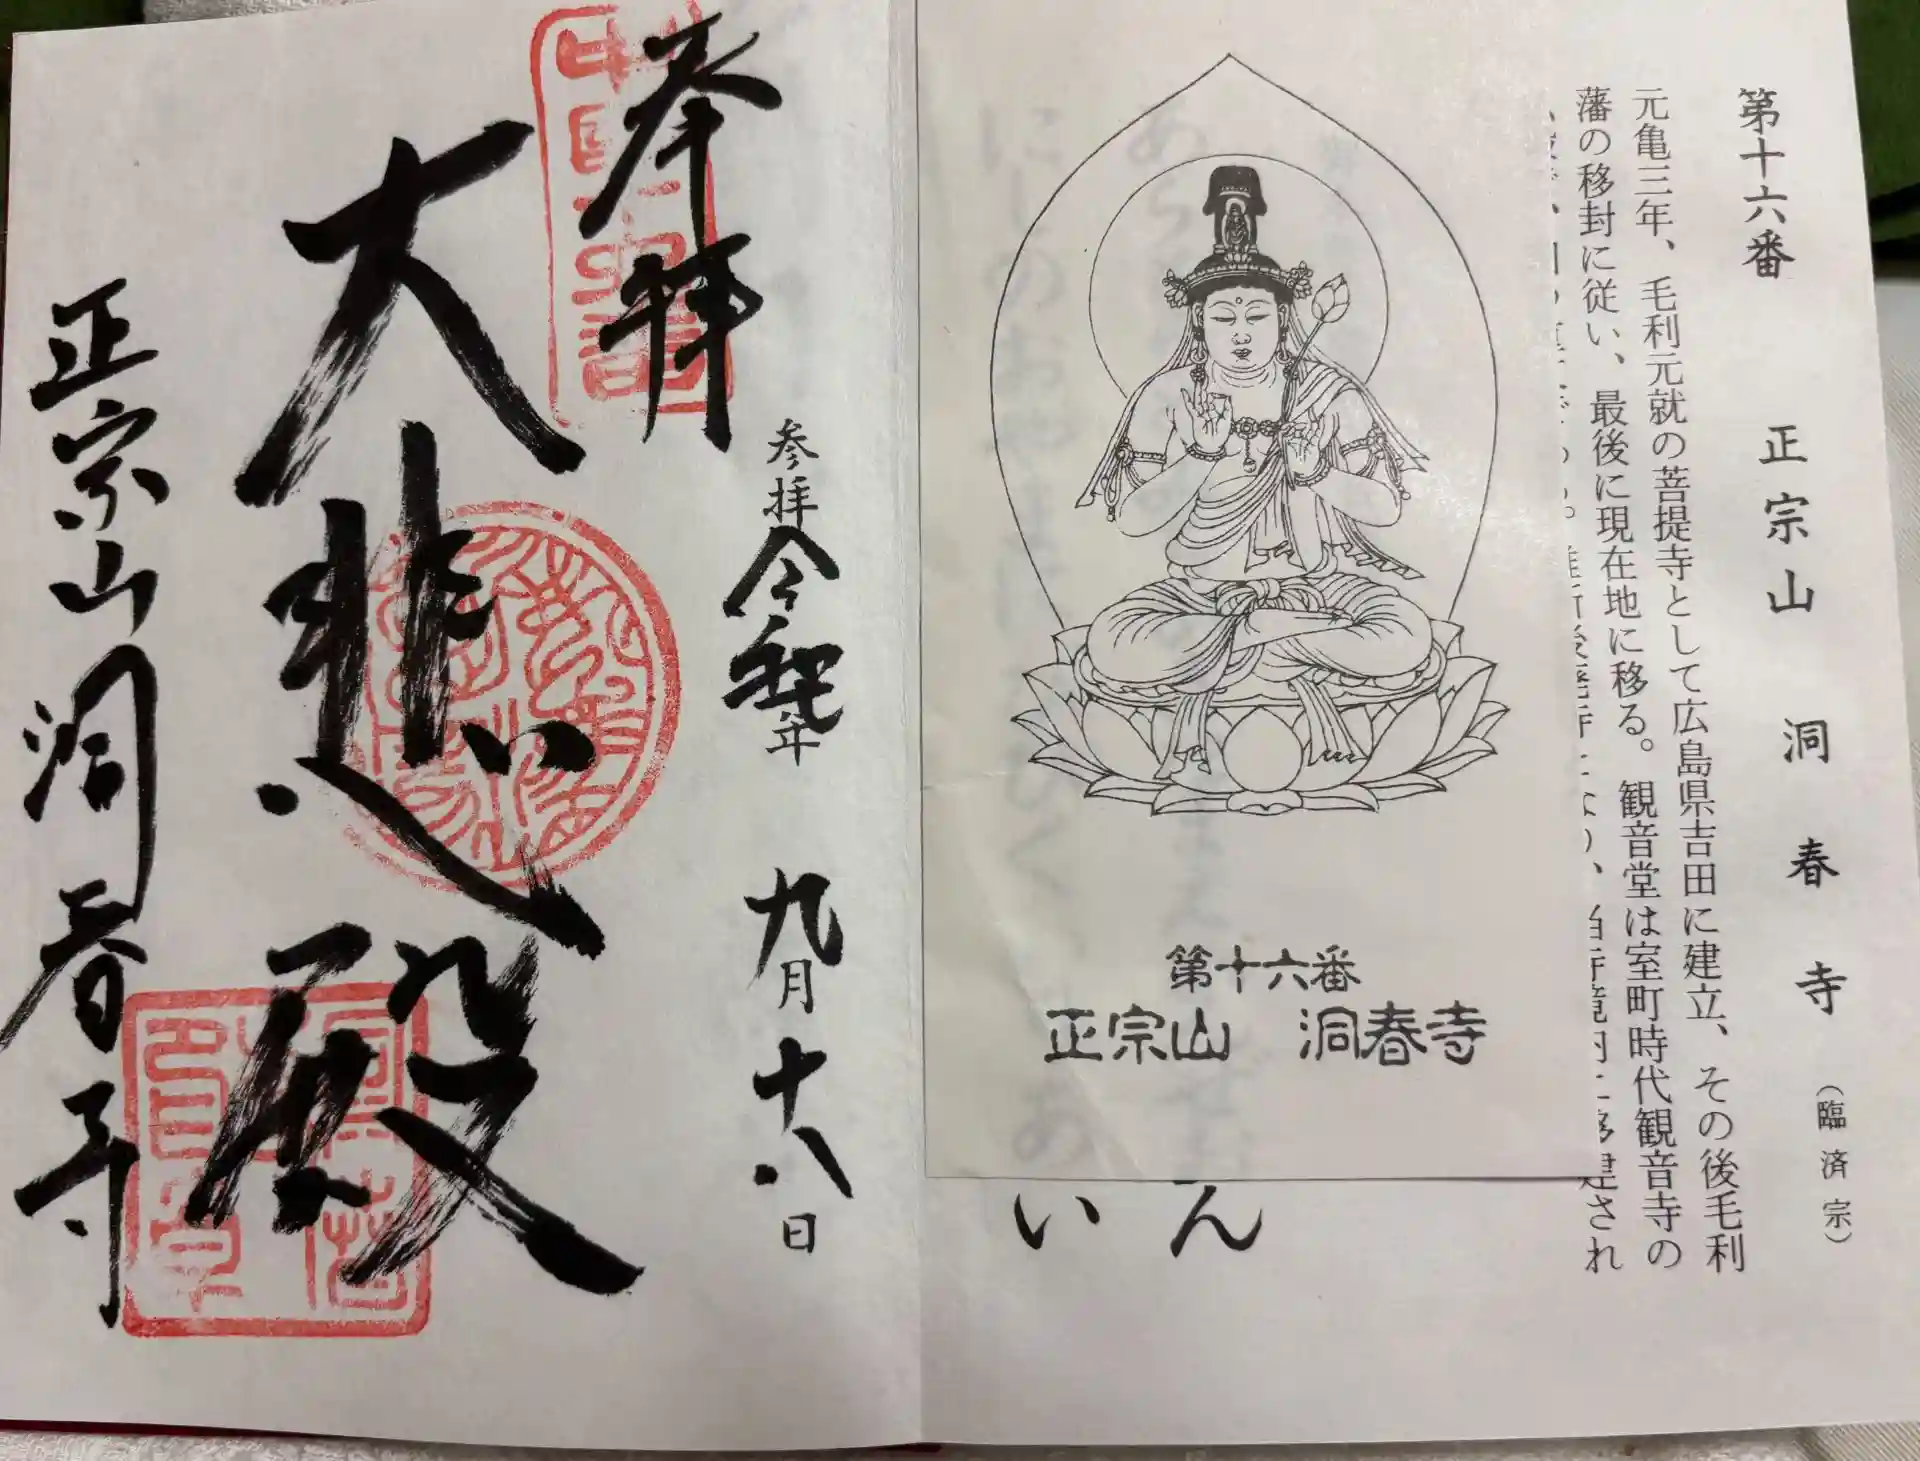 第十六番 正宗山 洞春寺 (臨済宗)
元亀三年、毛利元就の菩提寺として広島県吉田に建立、その後毛利
藩の移封に従い、最後に現在地に移る。観音堂は室町時代観音寺の
建され
ん
い
第十六番
正宗山 洞春寺
奉拝
参拝令和 年 九月十八日
大悲殿
正宗山洞春寺